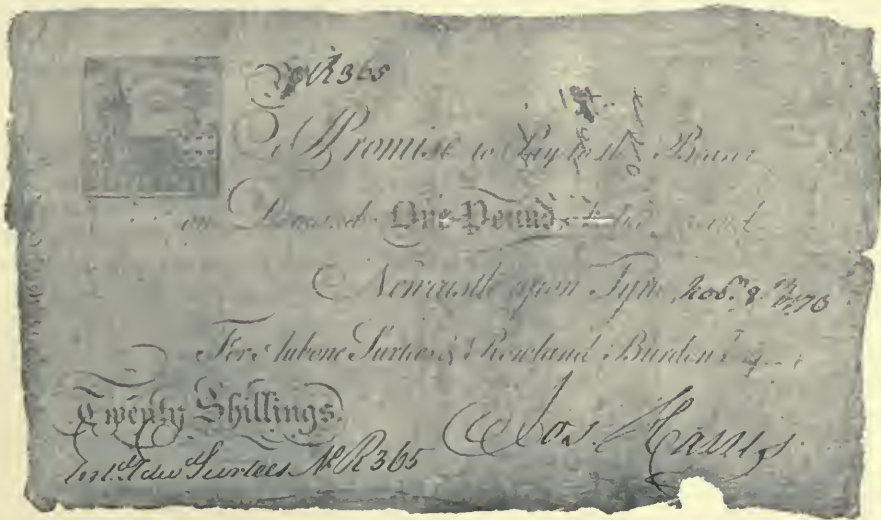 No R365
I Promise to Pay to the Bearer
on Demand One Pound
Newcastle upon Tyne Novr. 8th 1770
For Aubone Surtees & Rowland Burdon
Twenty Shillings.
Jos. Harris
Entd. Edwd. Surtees No R365